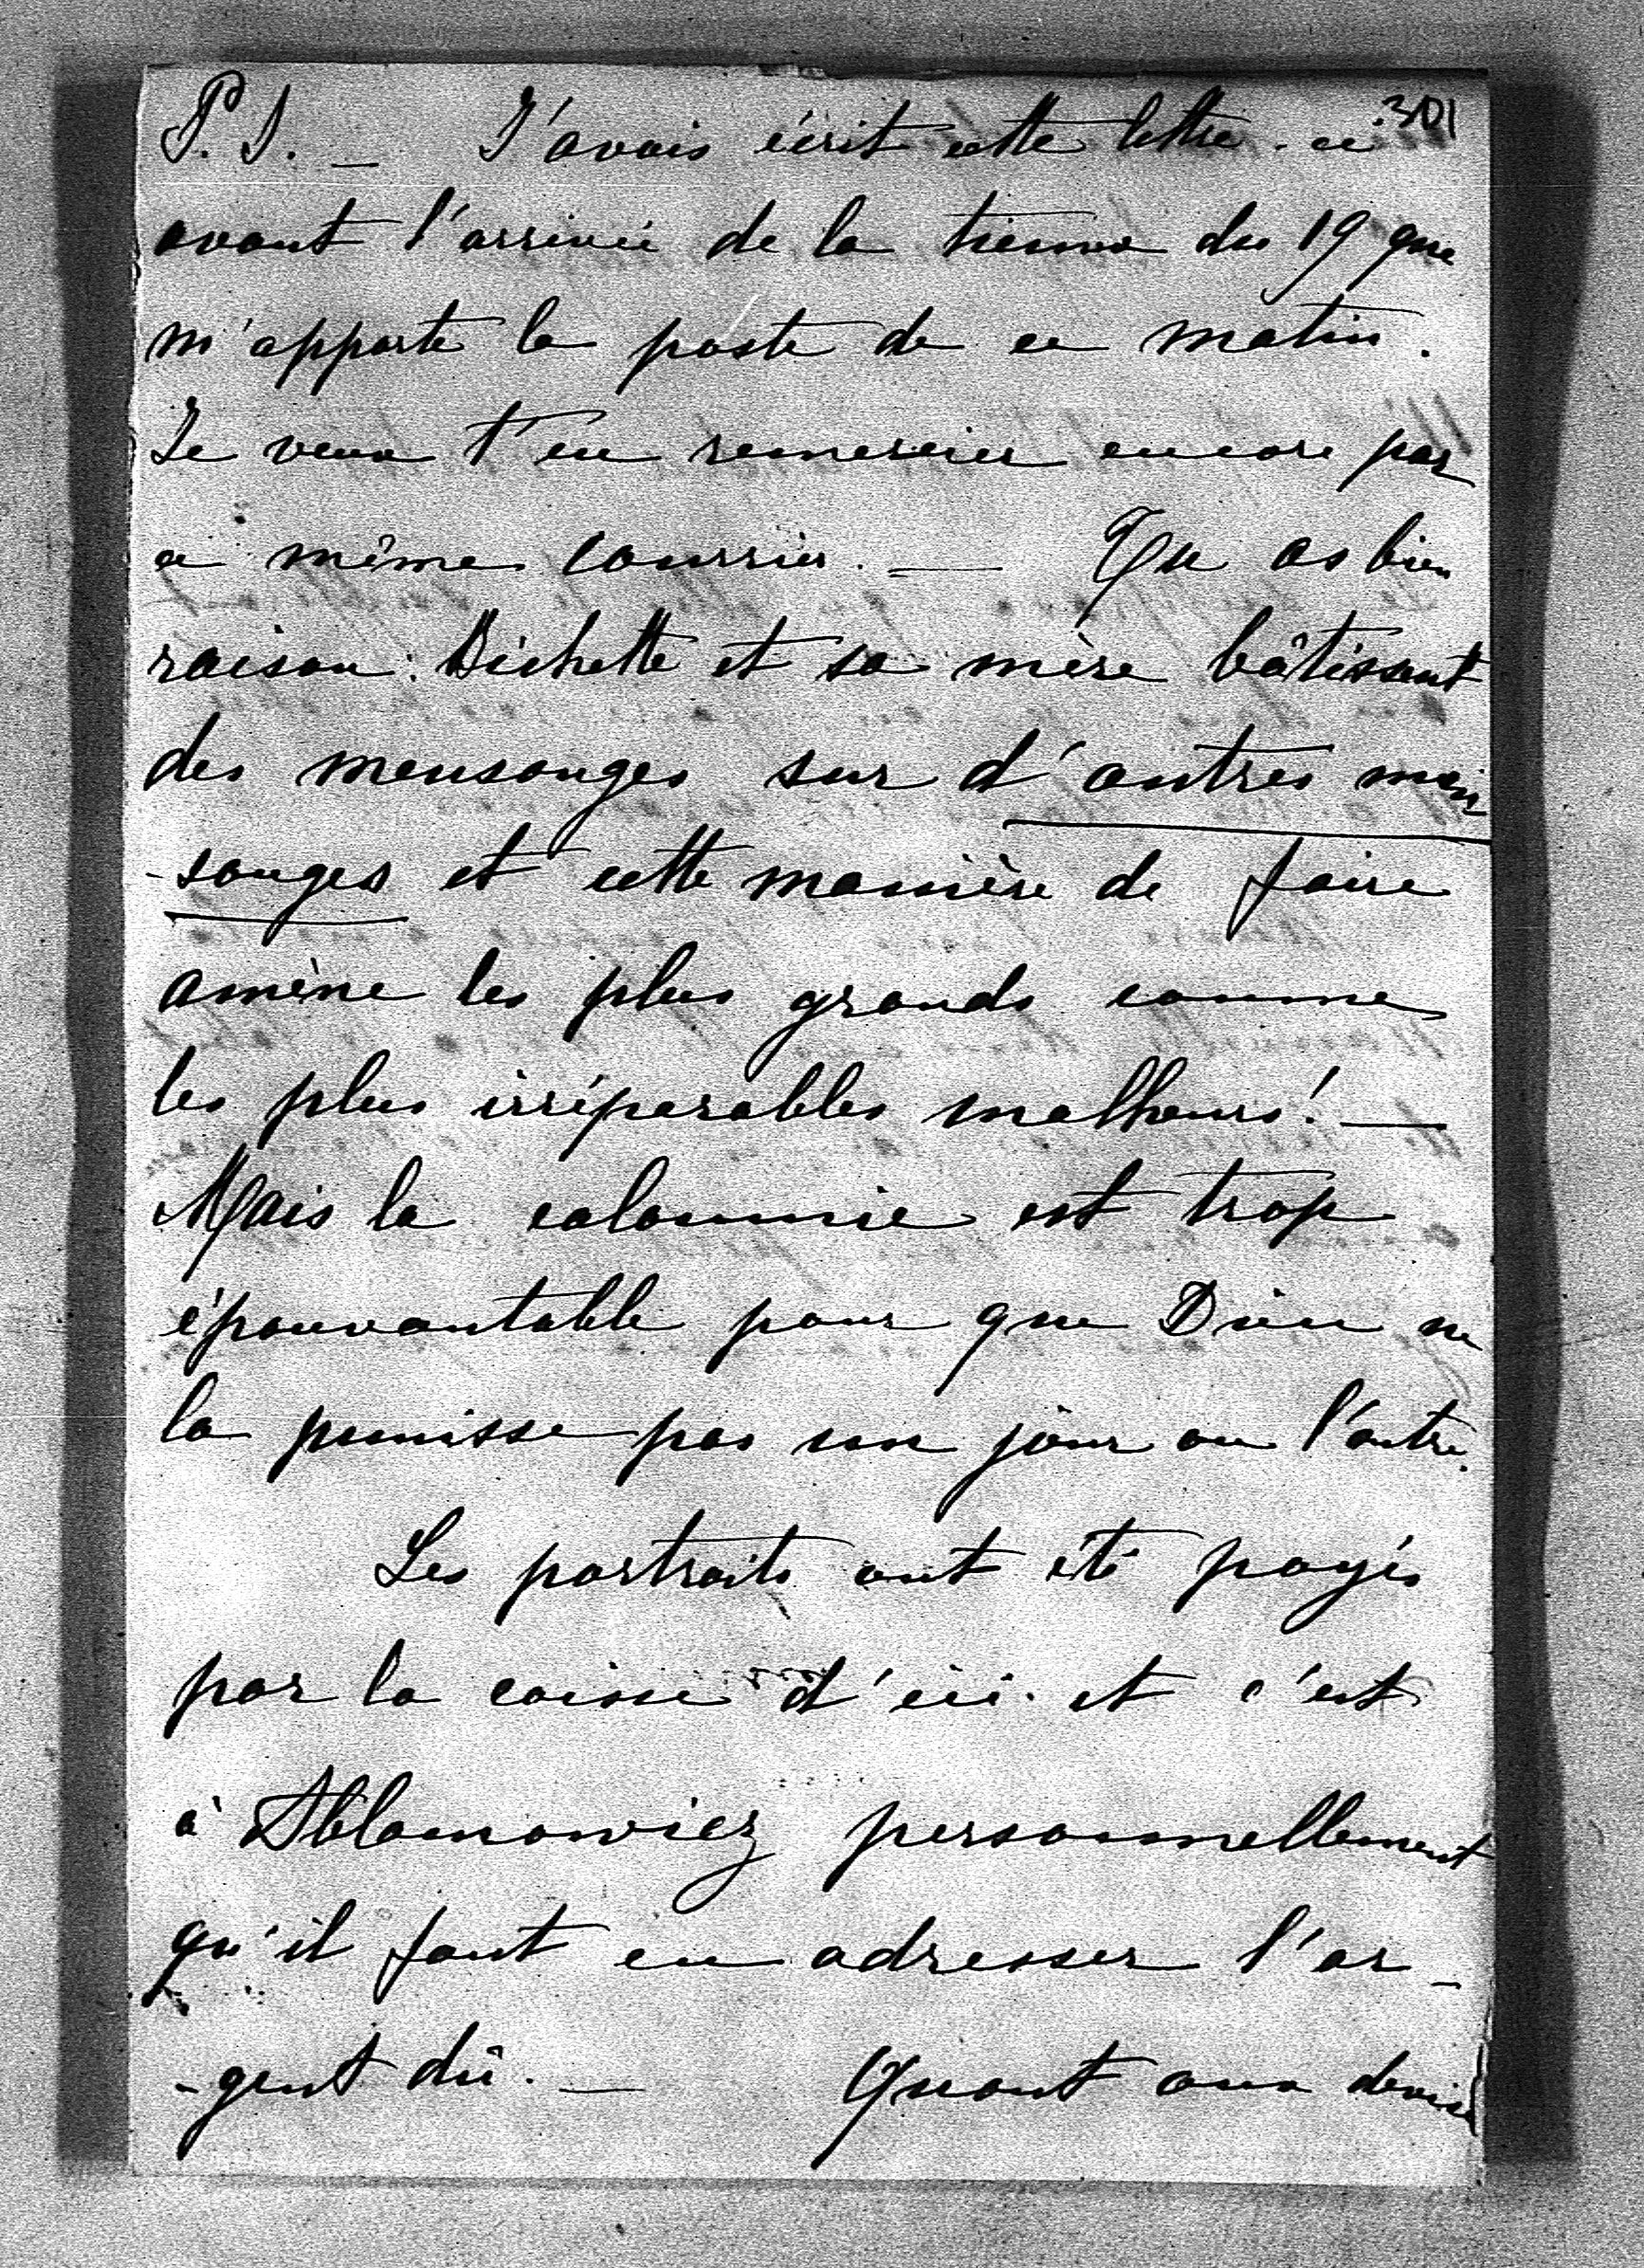 301
P. S. — J'avais écrit cette lettre. ce
avant l'arrivée de la tienne du 19 que
m'apporte la poste de ce matin.
Je veux t'en remercier encore par
ce même courrier. — Tu as bien
raison: Bichette et sa mère bâtissent
des mensonges sur d'autres men
-songes et cette manière de faire
amène les plus grands comme
les plus irréparables malheurs! —
Mais la calomnie est trop
épouvantable pour que Dieu ne
la punisse pas un jour ou l'autre.
Les portraits ont été payés
par la caisse d'ici. et c'est
à Ablamowicz personnellement
qu'il faut en adresser l'ar-
-gent dû. — Quant aux devises